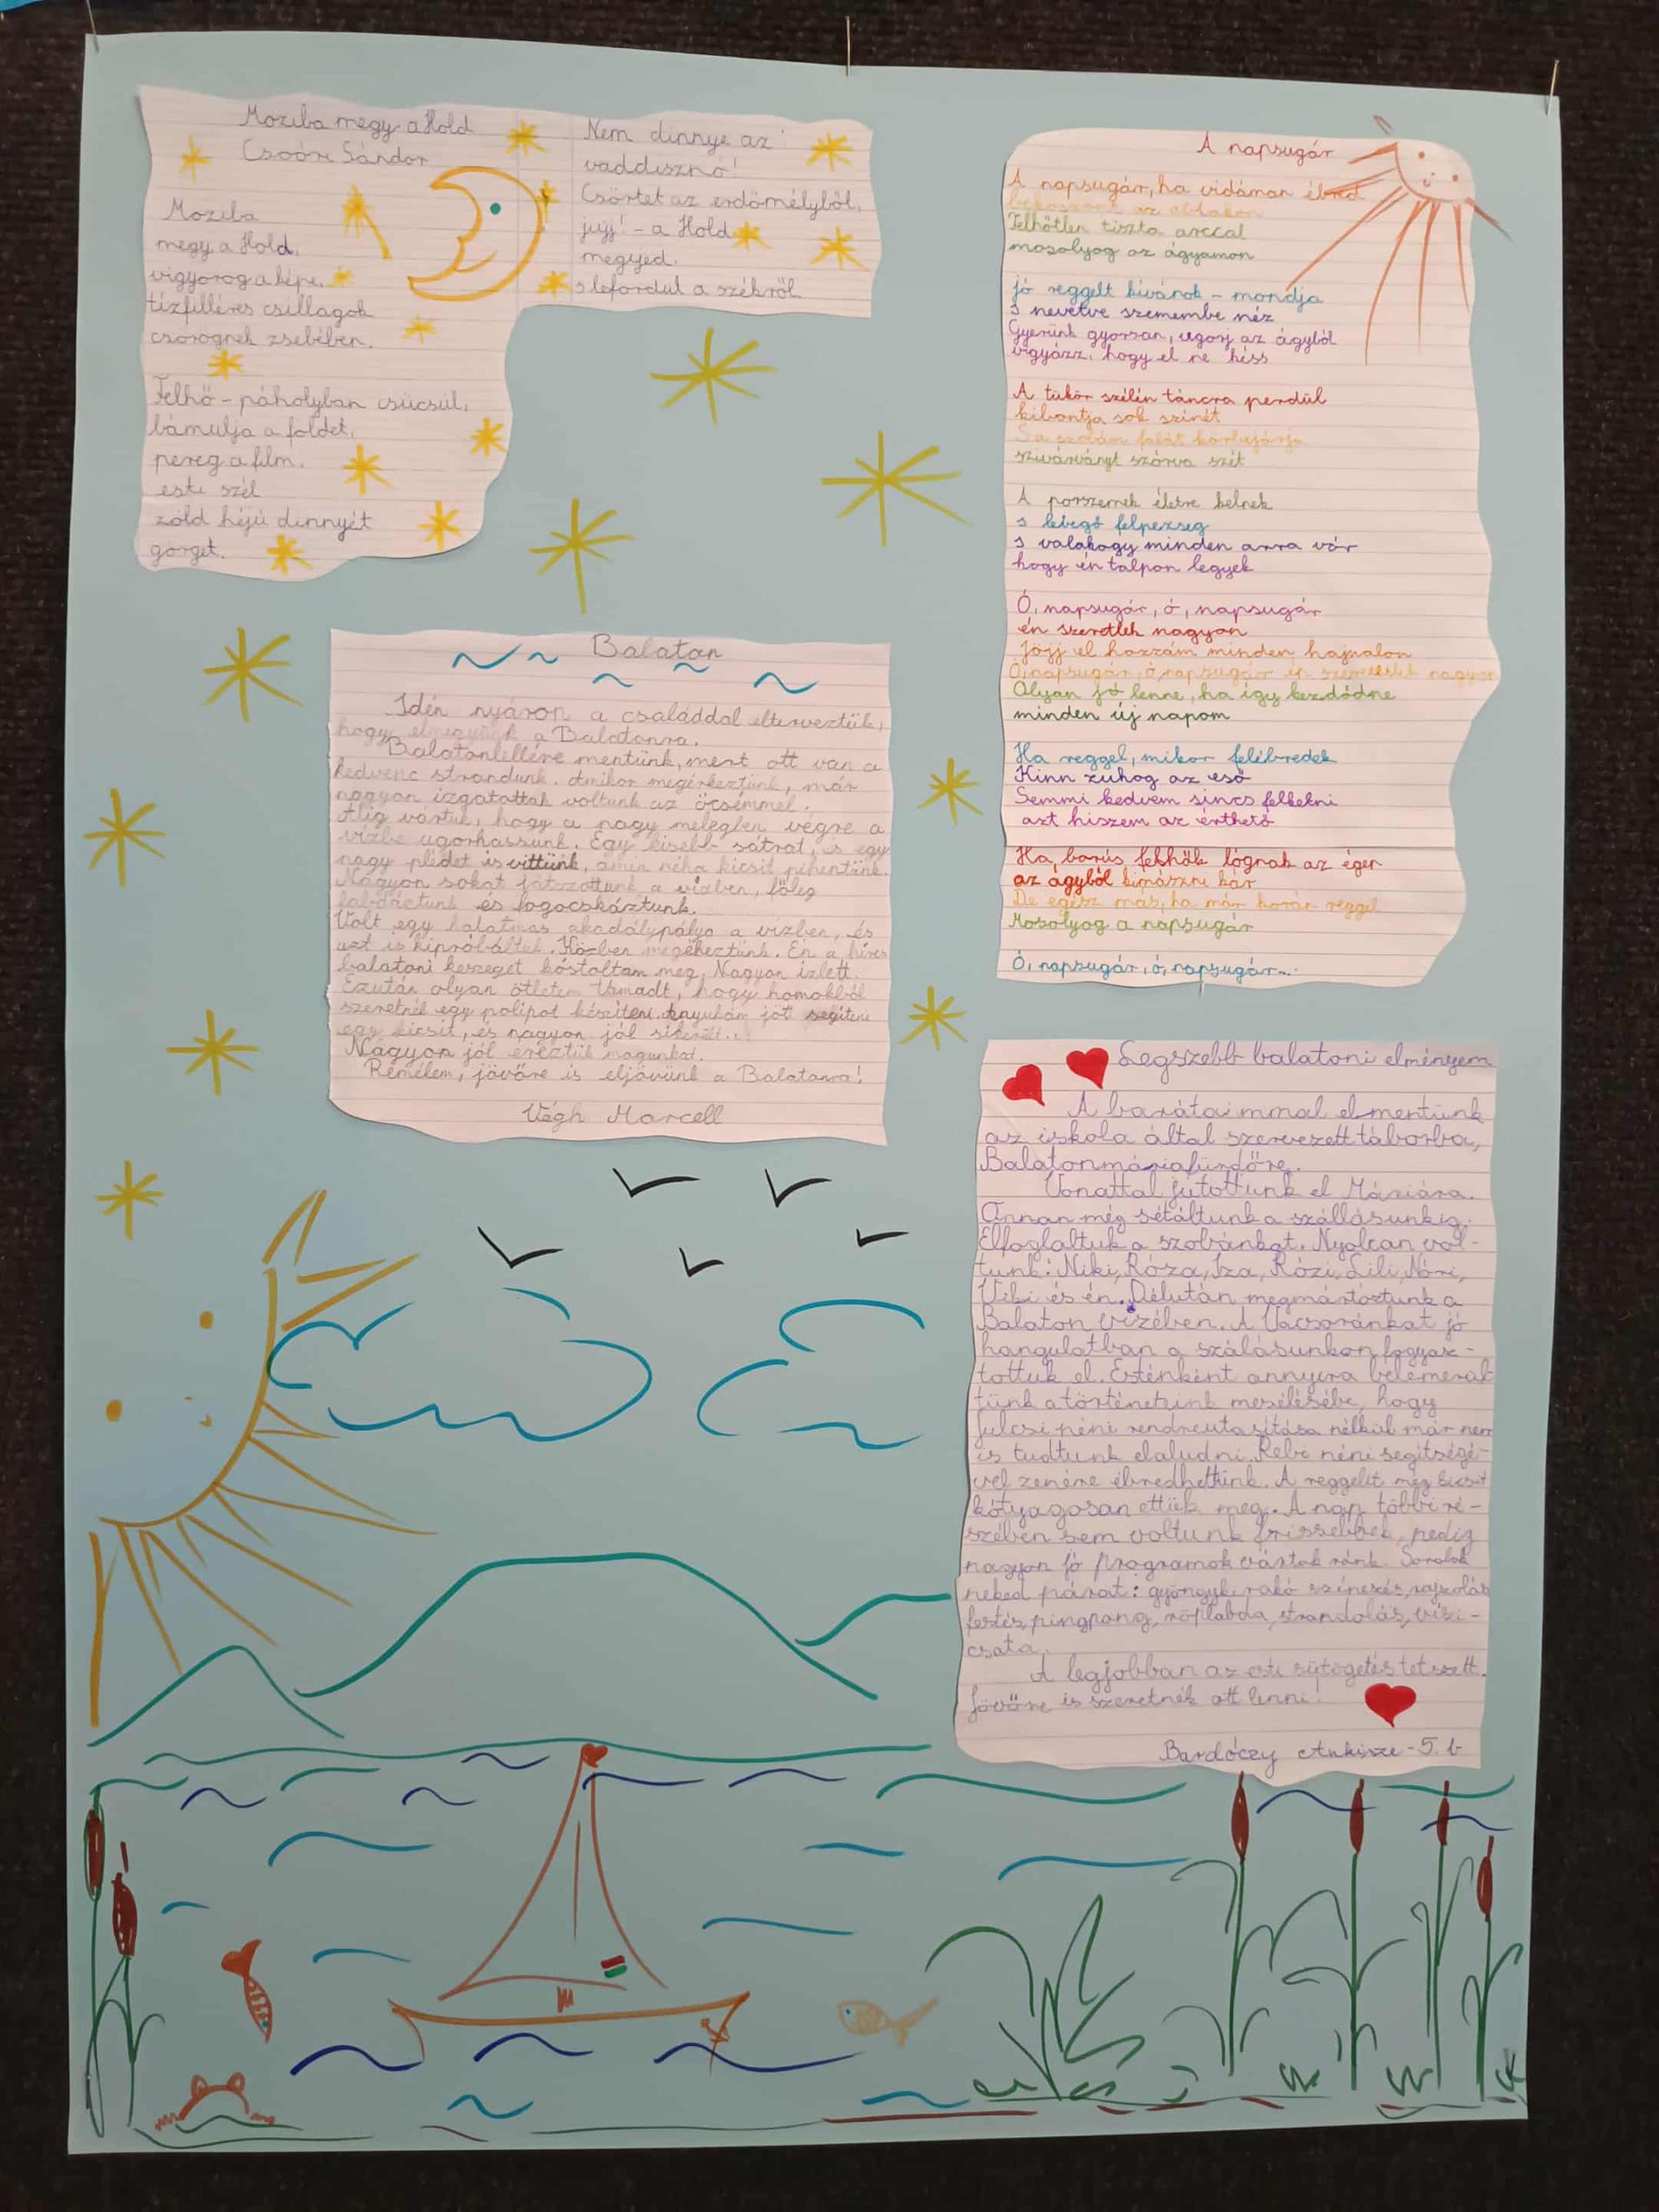 Moziba megy a Hold
Csoóri Sándor
Moziba
megy a Hold,
vigyorog a képe,
tízfilléres csillagok
csörögnek zsebében.
Felhő-páholyban csücsül,
bámulja a földet,
pereg a film.
esti szél
zöld héjú dinnyét
görget.
Nem dinnye az
vaddisznó!
Csörtet az erdőmélyből,
jujj! - a Hold
megijed,
s lefordul a székről
A napsugár
A napsugár, ha vidáman ébred
bekoszont az ablakon
Felhőtlen tiszta arccal
mosolyog az ágyamon
jó reggelt kívánok - mondja
s nevetve szemembe néz
Gyerünk gyorsan, ugorj az ágyból
vigyázz, hogy el ne késs
A tükör szélén táncra perdül
kibontja sok színét
S a szobám falát körbejárja
szivárványt szórva szét
A porszemek életre kelnek
s levegő felpezseg
s valahogy minden arra vár
hogy én talpon legyek
Ó, napsugár, ó, napsugár
én szeretlek nagyon
Jöjj el hozzám minden hajnalon
Ó, napsugár, ó, napsugár én szeretlek nagyon
Olyan jó lenne, ha így kezdődne
minden új napom
Ha reggel, mikor felébredek
Kinn zuhog az eső
Semmi kedvem sincs felkelni
azt hiszem az érthető
Ha, borús felhők lógnak az égen
az ágyból kimászni kár
De egész más, ha már korán reggel
Mosolyog a napsugár
Ó, napsugár, ó, napsugár...
Balaton
Idén nyáron a családdal elterveztük,
hogy elmegyünk a Balatonra.
Balatonlellére mentünk, mert ott van a
kedvenc strandunk. Amikor megérkeztünk, már
nagyon izgatottak voltunk az öcsémmel.
Alig vártuk, hogy a nagy melegben végre a
vízbe ugorhassunk. Egy kisebb sátrat, és egy
nagy plédet is vittünk, amin néha kicsit pihentünk.
Nagyon sokat játszottunk a vízben, főleg
labdáztunk és fogócskáztunk.
Volt egy hatalmas akadálypálya a vízben, és
azt is kipróbáltuk. Közben megéheztünk. Én a híres
balatoni keszeget kóstoltam meg. Nagyon ízlett.
Ezután olyan ötletem támadt, hogy homokból
szeretnék egy polipot készíteni. Anyukám jött segíteni
egy kicsit, és nagyon jól sikerült.
Nagyon jól éreztük magunkat.
Remélem, jövőre is eljövünk a Balatonra!
Végh Marcell
Legszebb balatoni élményem
A barátaimmal elmentünk
az iskola által szervezett táborba,
Balatonmáriafürdőre.
Vonattal jutottunk el Máriára.
Onnan még sétáltunk a szállásunkig.
Elfoglaltuk a szobánkat. Nyolcan vol-
tunk: Niki, Róza, Iza, Rózi, Lili, Nóri,
Viki és én. Délután megmártóztunk a
Balaton vizében. A Vacsoránkat jó
hangulatban a szálásunkon fogyasz-
tottuk el. Esténként annyira belemerül-
tünk a történeteink mesélésébe, hogy
Julcsi néni rendreutasítása nélkül már nem
is tudtunk elaludni. Rebi néni segítségé-
vel zenére ébredhettünk. A reggelit még kicsit
kótyagosan ettük meg. A nap többi ré-
szében sem voltunk frissebbek, pedig
nagyon jó programok vártak ránk. Sorolok
neked párat: gyöngyki rakó színezés, rajzolás
festés, pingpong, röplabda, strandolás, vízi-
csata.
A legjobban az esti sütögetés tetszett.
Jövőre is szeretnék ott lenni!
Bardóczy Ankisze - 5. b